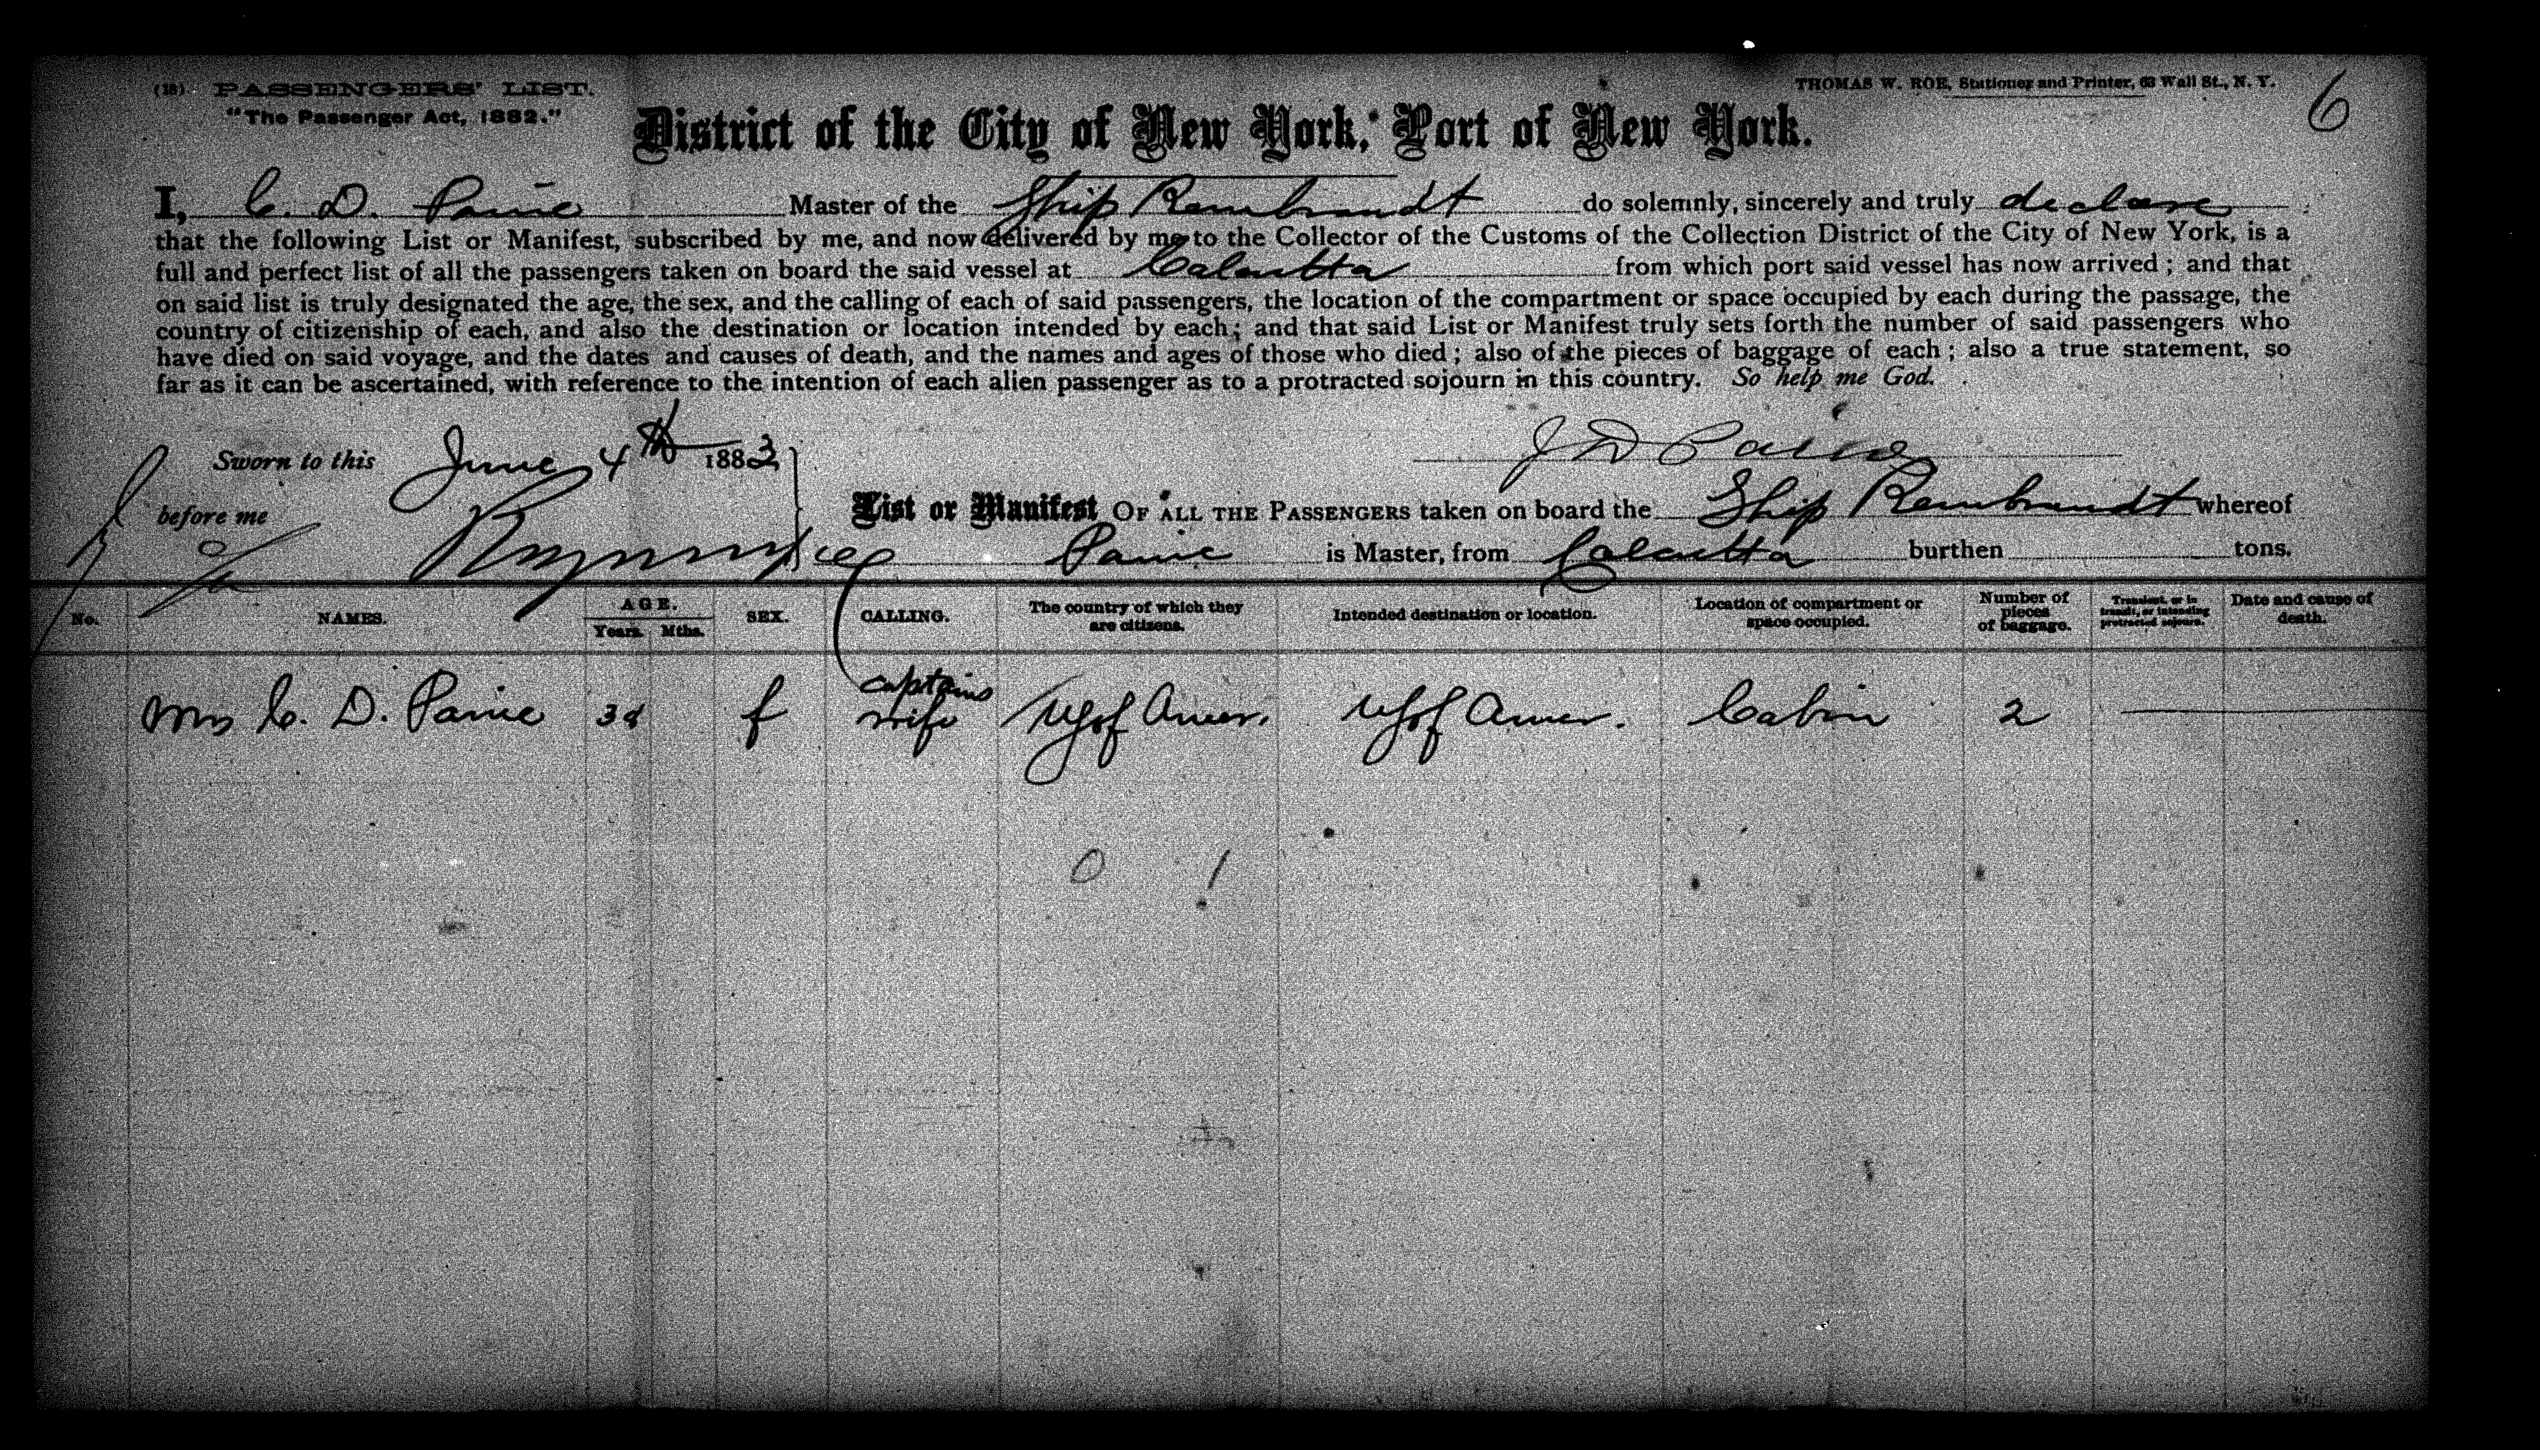 (18) PASSENGERS' LIST.
"The Passenger Act, 1882."
THOMAS W. ROE, Stationer and Printer, 63 Wall St., N. Y.
6
District of the City of New York, Port of New York.
I, C. D. Paine Master of the Ship Rembrandt do solemnly, sincerely and truly declare
that the following List or Manifest, subscribed by me, and now delivered by me to the Collector of the Customs of the Collection District of the City of New York, is a
full and perfect list of all the passengers taken on board the said vessel at Calcutta from which port said vessel has now arrived; and that
on said list is truly designated the age, the sex, and the calling of each of said passengers, the location of the compartment or space occupied by each during the passage, the
country of citizenship of each, and also the destination or location intended by each; and that said List or Manifest truly sets forth the number of said passengers who
have died on said voyage, and the dates and causes of death, and the names and ages of those who died; also of the pieces of baggage of each; also a true statement, so
far as it can be ascertained, with reference to the intention of each alien passenger as to a protracted sojourn in this country. So help me God.
Sworn to this June 4th 1883
J D Paine
before me
List or Manifest OF ALL THE PASSENGERS taken on board the Ship Rembrandt whereof
Paine is Master, from Calcutta burthen tons.
No. NAMES. AGE. Years. Mths. SEX. CALLING. The country of which they are citizens. Intended destination or location. Location of compartment or space occupied. Number of pieces of baggage. Transient, or in transit, or intending protracted sojourn. Date and cause of death.
Mrs C. D. Paine f captains wife US of Amer. US of Amer. Cabin 2
0 1